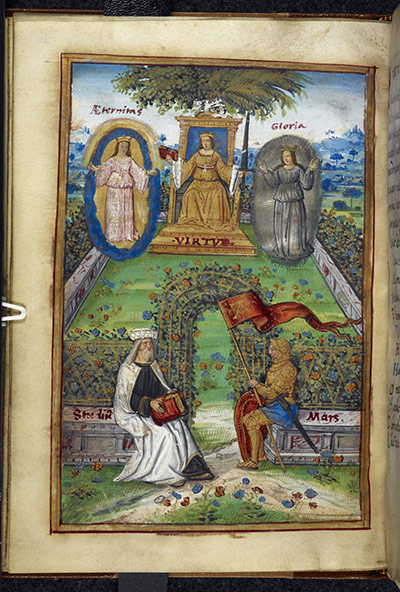 Æternitas
Gloria
VIRTVS
Mars.